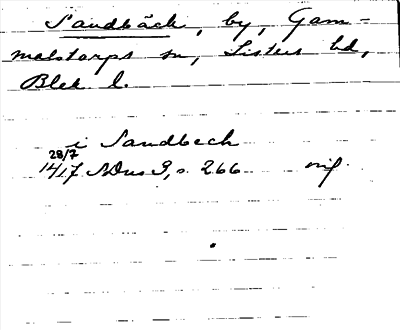 Sandbäck, by, Gam-
malstorps sn, Listers hd,
Blek. l.
i Sandbech
28/7
1417 NDus 3, s. 266 orig.